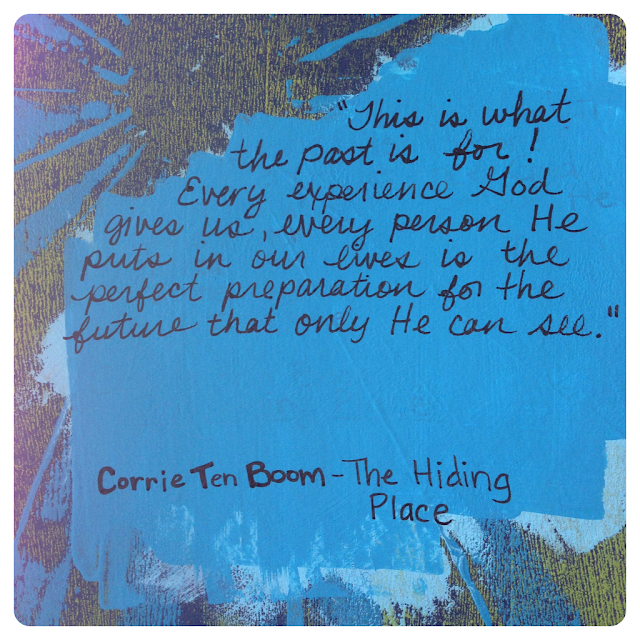 "This is what
the past is for!
Every experience God
gives us, every person He
puts in our lives is the
perfect preparation for the
future that only He can see."
Corrie Ten Boom - The Hiding
Place